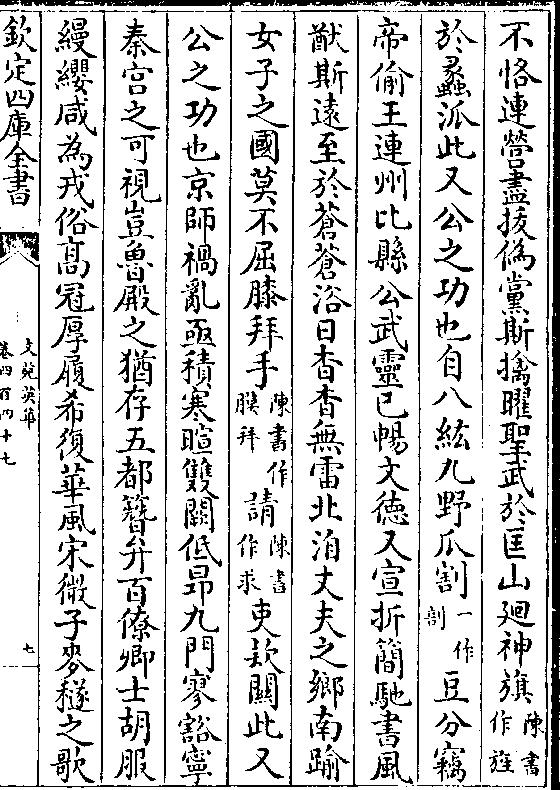 不恪連營盡拔偽黨斯擒曜聖武於匡山廻神旗陳書作旌
於蠡泒此又公之功也自八紘九野瓜割一作剖豆分竊
帝偷王連州比縣公武靈已暢文德又宣折簡馳書風
猷斯遠至於蒼蒼浴日杳杳無雷北洎丈夫之鄉南踰
女子之國莫不屈膝拜手陳書作膜拜請陳書作求吏欵關此又
公之功也京師禍亂亟積寒暄雙闕低昂九門寥豁寧
秦宫之可視豈魯殿之猶存五都簪弁百僚卿士胡服
縵纓咸為戎俗髙冠厚履希復華風宋微子麥穟之歌
欽定四庫全書
文苑英華
卷四百四十七
七